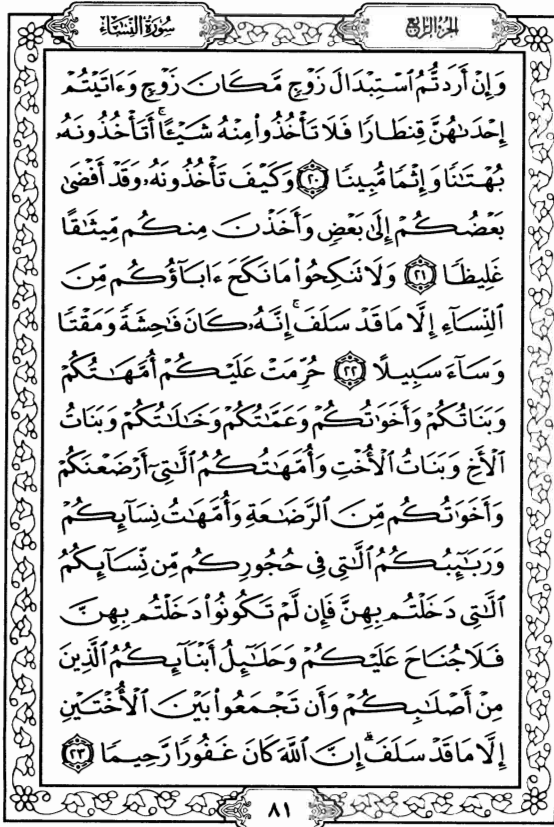 سُورَةُ النِّسَاءِ
الجُزْءُ الرَّابِعُ
وَإِنْ أَرَدتُّمُ ٱسْتِبْدَالَ زَوْجٍ مَّكَانَ زَوْجٍ وَءَاتَيْتُمْ
إِحْدَىٰهُنَّ قِنطَارًا فَلَا تَأْخُذُوا۟ مِنْهُ شَيْـًٔا ۚ أَتَأْخُذُونَهُۥ
بُهْتَـٰنًا وَإِثْمًا مُّبِينًا ٢٠ وَكَيْفَ تَأْخُذُونَهُۥ وَقَدْ أَفْضَىٰ
بَعْضُكُمْ إِلَىٰ بَعْضٍ وَأَخَذْنَ مِنكُم مِّيثَـٰقًا
غَلِيظًا ٢١ وَلَا تَنكِحُوا۟ مَا نَكَحَ ءَابَآؤُكُم مِّنَ
ٱلنِّسَآءِ إِلَّا مَا قَدْ سَلَفَ ۚ إِنَّهُۥ كَانَ فَـٰحِشَةً وَمَقْتًا
وَسَآءَ سَبِيلًا ٢٢ حُرِّمَتْ عَلَيْكُمْ أُمَّهَـٰتُكُمْ
وَبَنَاتُكُمْ وَأَخَوَٰتُكُمْ وَعَمَّـٰتُكُمْ وَخَـٰلَـٰتُكُمْ وَبَنَاتُ
ٱلْأَخِ وَبَنَاتُ ٱلْأُخْتِ وَأُمَّهَـٰتُكُمُ ٱلَّـٰتِىٓ أَرْضَعْنَكُمْ
وَأَخَوَٰتُكُم مِّنَ ٱلرَّضَـٰعَةِ وَأُمَّهَـٰتُ نِسَآئِكُمْ
وَرَبَـٰٓئِبُكُمُ ٱلَّـٰتِى فِى حُجُورِكُم مِّن نِّسَآئِكُمُ
ٱلَّـٰتِى دَخَلْتُم بِهِنَّ فَإِن لَّمْ تَكُونُوا۟ دَخَلْتُم بِهِنَّ
فَلَا جُنَاحَ عَلَيْكُمْ وَحَلَـٰٓئِلُ أَبْنَآئِكُمُ ٱلَّذِينَ
مِنْ أَصْلَـٰبِكُمْ وَأَن تَجْمَعُوا۟ بَيْنَ ٱلْأُخْتَيْنِ
إِلَّا مَا قَدْ سَلَفَ ۗ إِنَّ ٱللَّهَ كَانَ غَفُورًا رَّحِيمًا ٢٣
٨١